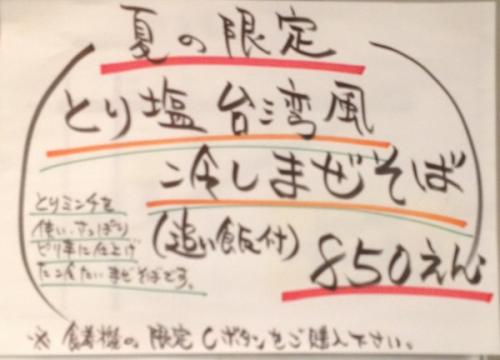 夏の限定
とり塩 台湾風
冷しまぜそば
(追い飯付)
850えん
とりミンチを
使い、さっぱり
ピリ辛に仕上げ
た冷たいまぜそばです。
※ 食券機の 限定Cボタンをご購入下さい。